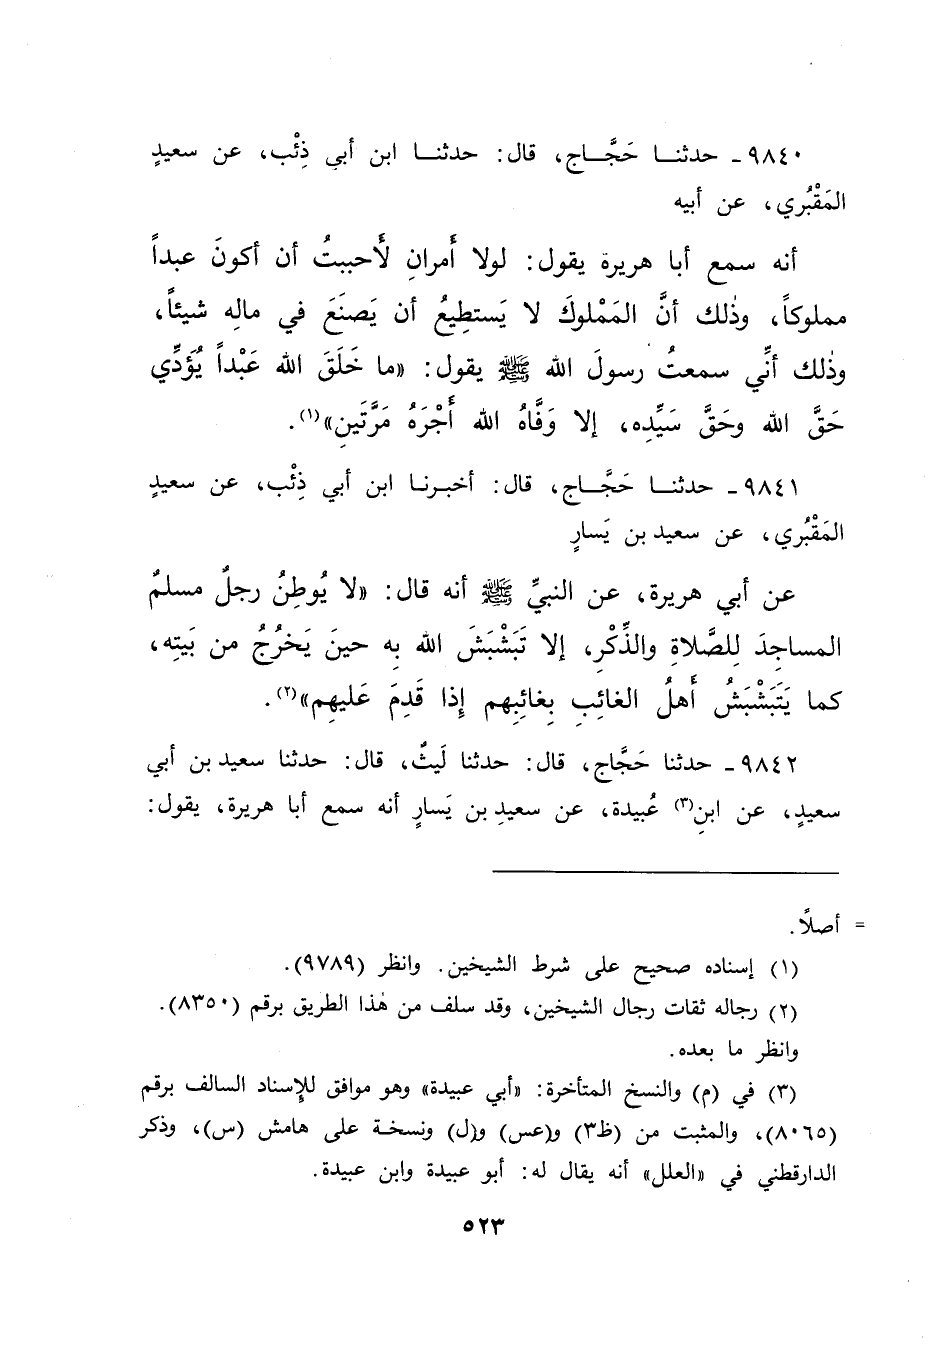 ٩٨٤٠ - حدثنــا حَجَّــاج، قال: حدثنــا ابن أبي ذِئْب، عن سعيدٍ
المَقْبُري، عن أبيه
أنه سمع أبا هريرة يقول: لولا أَمرانِ لأَحببتُ أن أكونَ عبداً
مملوكاً، وذٰلك أنَّ المَمْلوكَ لا يَستطِيعُ أن يَصنَعَ في مالِه شيئاً،
وذٰلك أنِّي سمعتُ رسولَ الله ﷺ يقول: «ما خَلَقَ الله عَبْداً يُؤَدِّي
حَقَّ الله وحَقَّ سَيِّدِه، إلا وَفَّاهُ الله أَجْرَهُ مَرَّتَين»(١).
٩٨٤١ - حدثنــا حَجَّــاج، قال: أخبرنـا ابن أبي ذِئْب، عن سعيدٍ
المَقْبُري، عن سعيد بن يَسارٍ
عن أبي هريرة، عن النبيِّ ﷺ أنه قال: «لا يُوطِنُ رجلٌ مسلمٌ
المساجِدَ لِلصَّلاةِ والذِّكْرِ، إلا تَبَشْبَشَ الله بِه حينَ يَخرُجُ من بَيتِه،
كما يَتَبَشْبَشُ أَهلُ الغائِبِ بِغائِبِهم إِذا قَدِمَ عَليهِم»(٢).
٩٨٤٢ - حدثنا حَجَّاج، قال: حدثنا لَيثٌ، قال: حدثنا سعيد بن أبي
سعيدٍ، عن ابنِ(٣) عُبيدة، عن سعيدِ بن يَسارٍ أنه سمع أبا هريرة، يقول:
= أصلاً.
(١) إسناده صحيح على شرط الشيخين. وانظر (٩٧٨٩).
(٢) رجاله ثقات رجال الشيخين، وقد سلف من هٰذا الطريق برقم (٨٣٥٠).
وانظر ما بعده.
(٣) في (م) والنسخ المتأخرة: «أبي عبيدة» وهو موافق للإسناد السالف برقم
(٨٠٦٥)، والمثبت من (ظ٣) و(عس) و(ل) ونسخة على هامش (س)، وذكر
الدارقطني في «العلل» أنه يقال له: أبو عبيدة وابن عبيدة.
٥٢٣